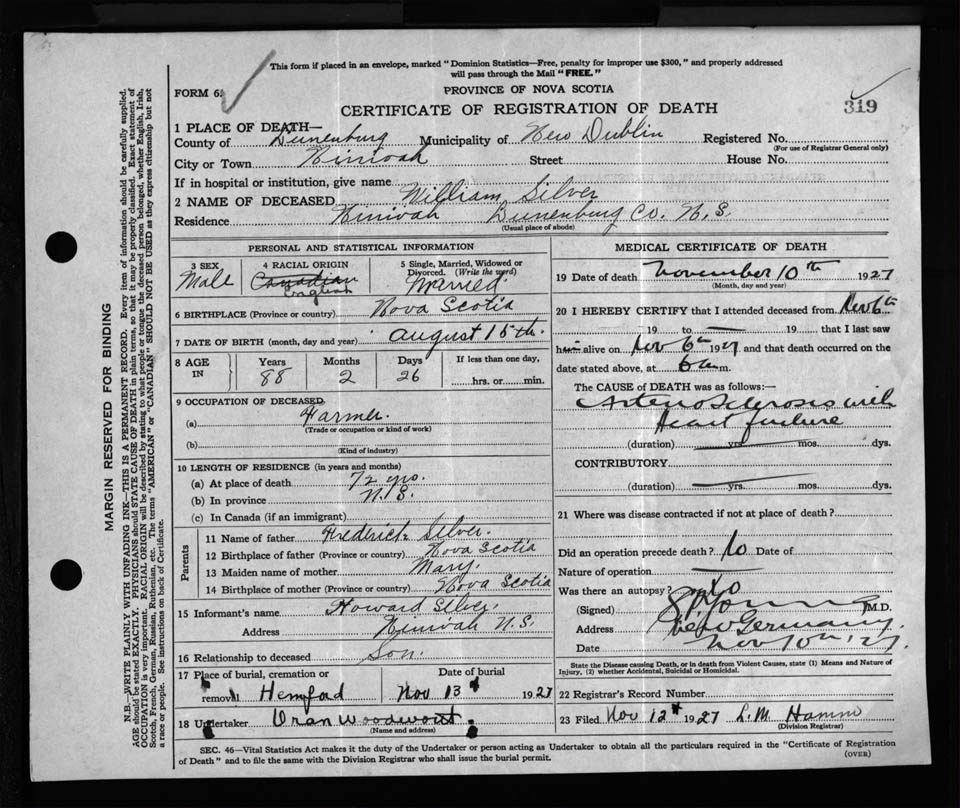 This form if placed in an envelope, marked "Dominion Statistics—Free, penalty for improper use $300," and properly addressed
will pass through the Mail "FREE."
FORM 6
PROVINCE OF NOVA SCOTIA
319
CERTIFICATE OF REGISTRATION OF DEATH
1 PLACE OF DEATH—
County of Lunenburg Municipality of New Dublin Registered No.
(For use of Registrar General only)
City or Town Ninivah Street House No.
If in hospital or institution, give name
2 NAME OF DECEASED William Silver
Residence Ninivah Lunenburg Co. N.S.
(Usual place of abode)
PERSONAL AND STATISTICAL INFORMATION
3 SEX Male
4 RACIAL ORIGIN Canadian English
5 Single, Married, Widowed or Divorced. (Write the word) Married
6 BIRTHPLACE (Province or country) Nova Scotia
7 DATE OF BIRTH (month, day and year) August 15th
8 AGE IN Years 88 Months 2 Days 26 If less than one day, hrs. or min.
9 OCCUPATION OF DECEASED
(a) Farmer
(Trade or occupation or kind of work)
(b)
(Kind of industry)
10 LENGTH OF RESIDENCE (in years and months)
(a) At place of death 72 yrs.
(b) In province N.S.
(c) In Canada (if an immigrant)
Parents
11 Name of father Frederick Silver.
12 Birthplace of father (Province or country) Nova Scotia
13 Maiden name of mother Mary.
14 Birthplace of mother (Province or country) Nova Scotia
15 Informant's name Howard Silver.
Address Ninivah N.S.
16 Relationship to deceased Son.
17 Place of burial, cremation or removal Hemford Date of burial Nov 13 1927
18 Undertaker Oran Woodwort
(Name and address)
MEDICAL CERTIFICATE OF DEATH
19 Date of death November 10th 1927
(Month, day and year)
20 I HEREBY CERTIFY that I attended deceased from Nov 6th
19 to 19 that I last saw
him alive on Nov 6th 1927 and that death occurred on the
date stated above, at 6 a m.
The CAUSE of DEATH was as follows:—
Arteriosclerosis with
Heart failure
(duration) yrs. mos. dys.
CONTRIBUTORY
(duration) yrs. mos. dys.
21 Where was disease contracted if not at place of death?
Did an operation precede death? No Date of
Nature of operation
Was there an autopsy? No
(Signed) M.D.
Address New Germany.
Date Nov 10th '27
State the Disease causing Death, or in death from Violent Causes, state (1) Means and Nature of
Injury, (2) whether Accidental, Suicidal or Homicidal.
22 Registrar's Record Number
23 Filed Nov 12th 1927 L. M. Hamm
(Division Registrar)
SEC. 46—Vital Statistics Act makes it the duty of the Undertaker or person acting as Undertaker to obtain all the particulars required in the "Certificate of Registration
of Death" and to file the same with the Division Registrar who shall issue the burial permit.
(OVER)
MARGIN RESERVED FOR BINDING
N.B.—WRITE PLAINLY WITH UNFADING INK—THIS IS A PERMANENT RECORD. Every item of information should be carefully supplied.
AGE should be stated EXACTLY. PHYSICIANS should STATE CAUSE OF DEATH in plain terms, so that it may be properly classified. Exact statement of
OCCUPATION is very important. RACIAL ORIGIN will be described by stating to what people or tongue the deceased person belonged, whether English, Irish,
Scotch, French, German, Russian, Ruthenian, etc. The terms "AMERICAN" or "CANADIAN" SHOULD NOT BE USED as they express citizenship but not
a race or people. See instructions on back of Certificate.